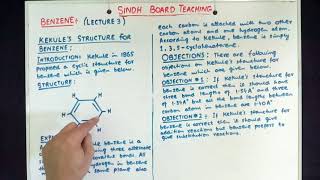 SINDH BOARD TEACHING
BENZENE:- (LECTURE 3)
KEKULE'S STRUCTURE FOR
BENZENE:
INTRODUCTION: KEKULE IN 1865
PROPOSED A CYCLIC STRUCTURE FOR
BENZENE WHICH IS GIVEN BELOW.
STRUCTURE:
H
H
H
H
H
EXP
BENZENE IS A
THREE ALTERNATE
COVALENT BONDS. ALL
HYDROGEN IN BENZENE
SAME PLANE ALSO
EACH CARBON IS ATTACHED WITH TWO OTHER
CARBON ATOMS AND ONE HYDROGEN ATOM.
ACCORDING TO KEKULE, BENZENE IS SIMPLY
1,3,5-CYCLOHEXATRIENE.
OBJECTIONS: THERE ARE FOLLOWING
OBJECTIONS ON KEKULE'S STRUCTURE FOR
BENZENE WHICH ARE GIVEN BELOW.
OBJECTION #1: IF KEKULE'S STRUCTURE FOR
BENZENE IS CORRECT THEN IS SHOULD HAVE
THREE BOND LENGTHS OF 1.34A° AND THREE
OF 1.54A° BUT ALL THE BOND LENGTHS BETWEEN
CARBON ATOMS IN BENZENE ARE 1.40A°
OBJECTION #2: IF KEKULE'S STRUCTURE FOR
BENZENE IS CORRECT THEN IS SHOULD GIVE
ADDITION REACTIONS BUT BENZENE PREFERS TO
GIVE SUBSTITUTION REACTIONS.